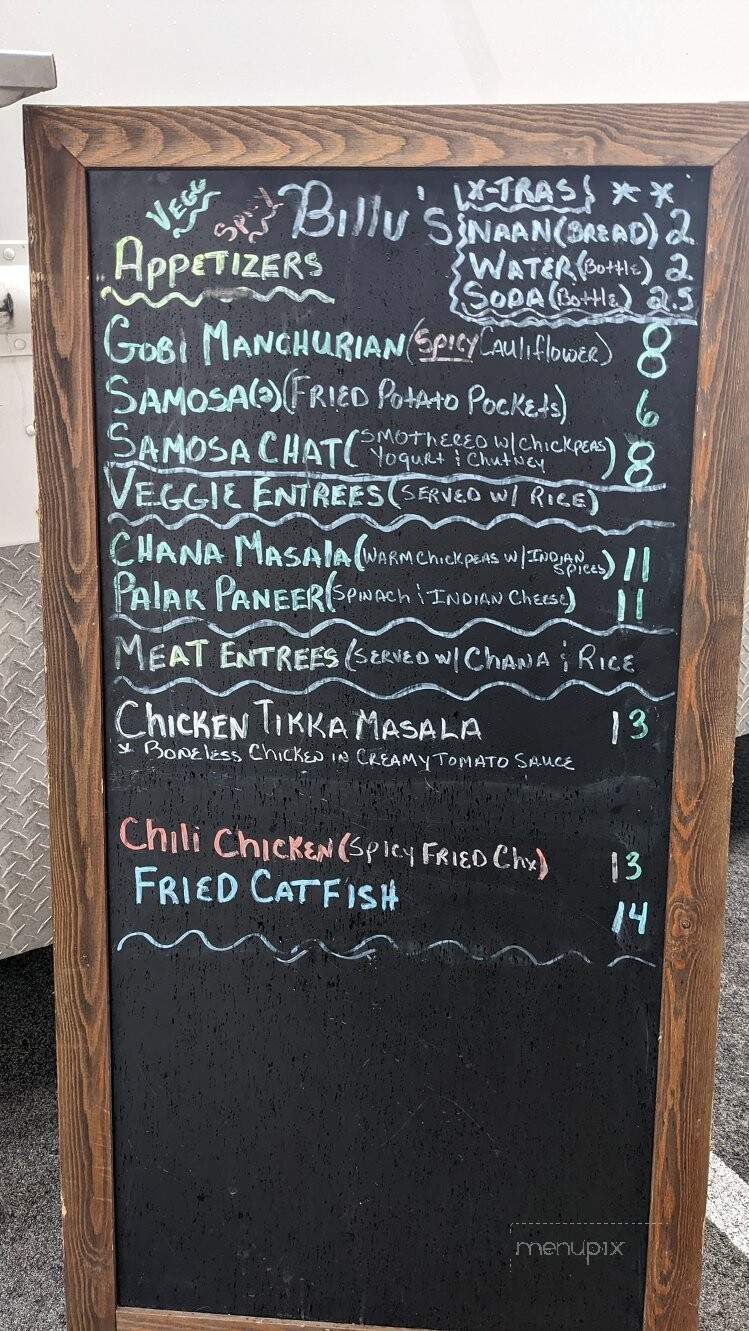 VEGG
SPICY
Billu's
X-TRAS * *
NAAN (BREAD) 2
WATER (Bottle) 2
SODA (Bottle) 2.5
APPETIZERS
GOBI MANCHURIAN (SPICY CAULIFLOWER) 8
SAMOSA (2) (FRIED POTATO POCKETS) 6
SAMOSA CHAT (SMOTHERED W/ CHICKPEAS
YOGURT & CHUTNEY) 8
VEGGIE ENTREES (SERVED W/ RICE)
CHANA MASALA (WARM CHICKPEAS W/ INDIAN
SPICES) 11
PALAK PANEER (SPINACH & INDIAN CHEESE) 11
MEAT ENTREES (SERVED W/ CHANA & RICE
CHICKEN TIKKA MASALA 13
* BONELESS CHICKEN IN CREAMY TOMATO SAUCE
Chili CHICKEN (SPICY FRIED Chx) 13
FRIED CATFISH 14
menupix